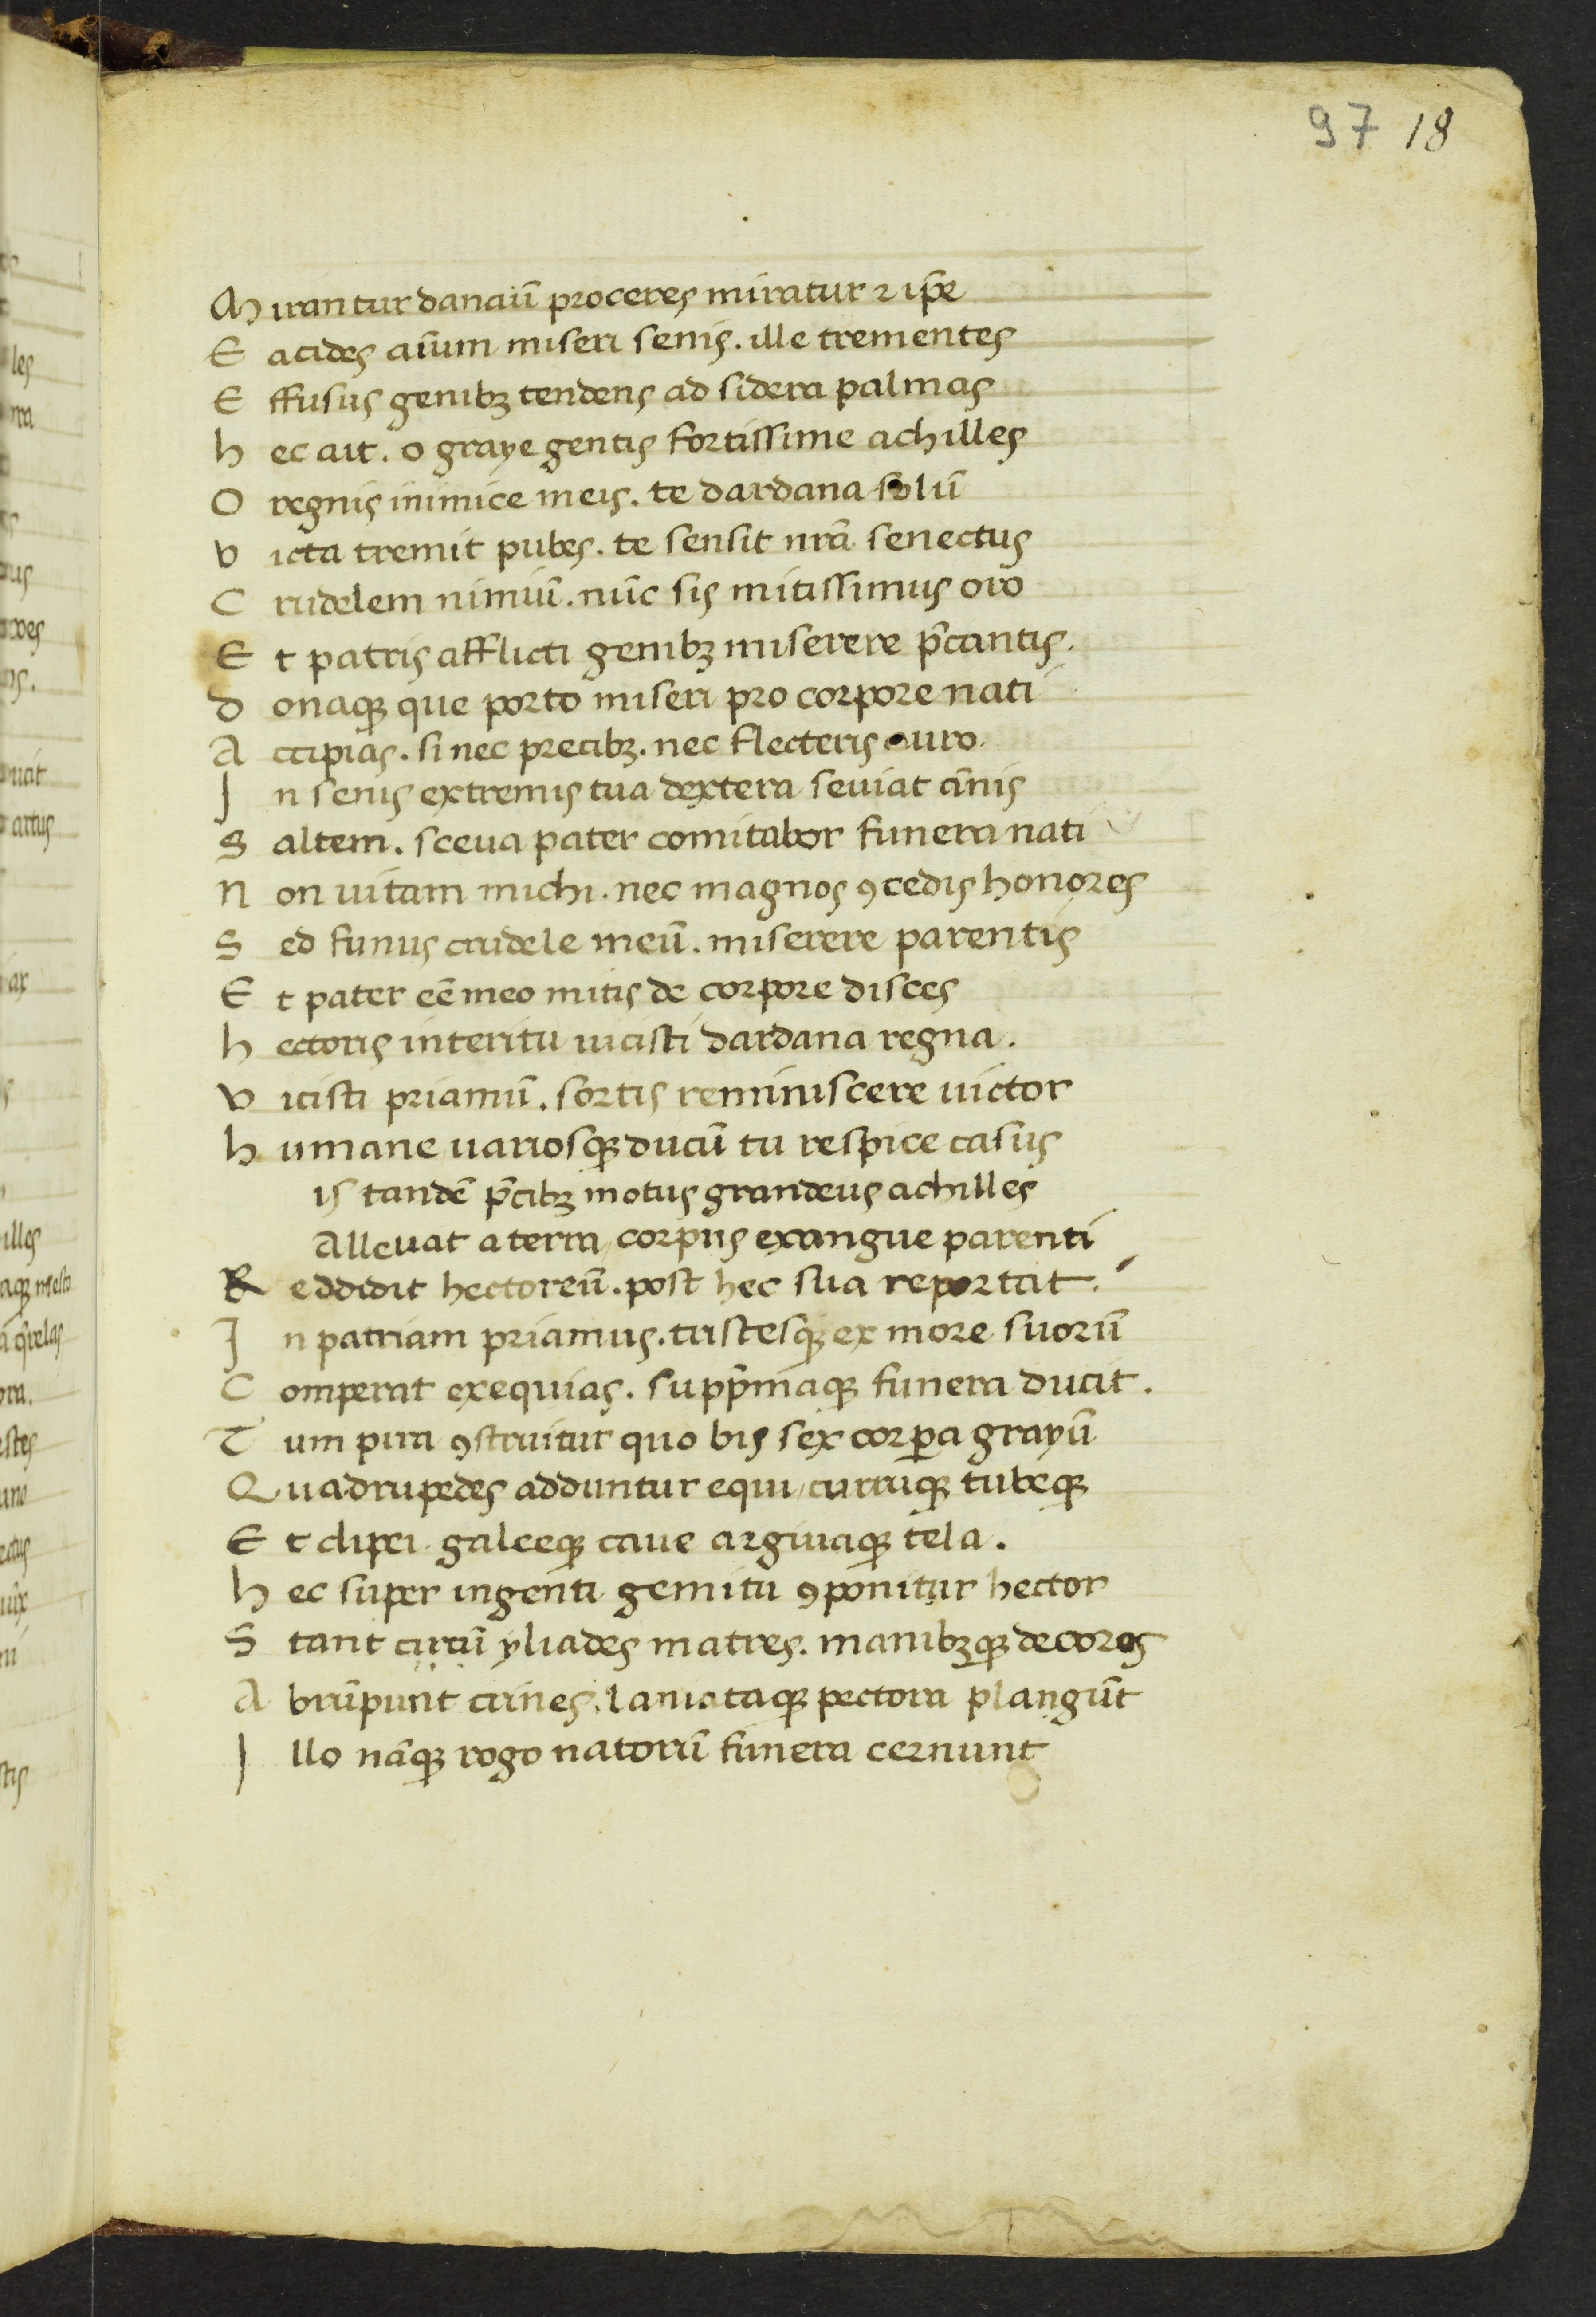 97 18
Mirantur danaũ proceres miratur ⁊ ip̃e
Eacides aĩum miseri senis. ille trementes
Effusus genibꝫ tendens ad sidera palmas
hec ait. o graye gentis fortissime achilles
O regnis inimice meis. te dardana solũ
victa tremit pubes. te sensit nr̃a senectus
Crudelem nimiũ. nũc sis mitissimus oro
Et patris afflicti genibꝫ miserere p̃cantis.
donaqꝫ que porto miseri pro corpore nati
Accipias. si nec precibꝫ. nec flecteris auro.
In senis extremis tua dextera seuiat ãnis
Saltem. sceua pater comitabor funera nati
Non uitam michi. nec magnos ꝯcedis honores
Sed funus crudele meũ. miserere parentis
Et pater eẽ meo mitis de corpore disces
hectoris interitu uicisti dardana regna.
vicisti priamũ. sortis reminiscere uictor
humane uariosqꝫ ducũ tu respice casus
is tandẽ p̃cibꝫ motus grandeus achilles
Alleuat a terra corpus exangue parenti
Reddidit hectoreũ. post hec sua reportat.
In patriam priamus. tristesqꝫ ex more suorũ
Comperat exequias. supp̃maqꝫ funera ducit.
Tum pira ꝯstruitur quo bis sex corpora grayũ
Quadrupedes adduntur equi curruqꝫ tubeqꝫ
Et clipei galeeqꝫ caue argiuaqꝫ tela.
hec super ingenti gemitu ꝯponitur hector
Stant circũ yliades matres. manibꝫqꝫ decoros
Abrũpunt crines. laniataqꝫ pectora plangũt
Illo nãqꝫ rogo natorũ funera cernunt